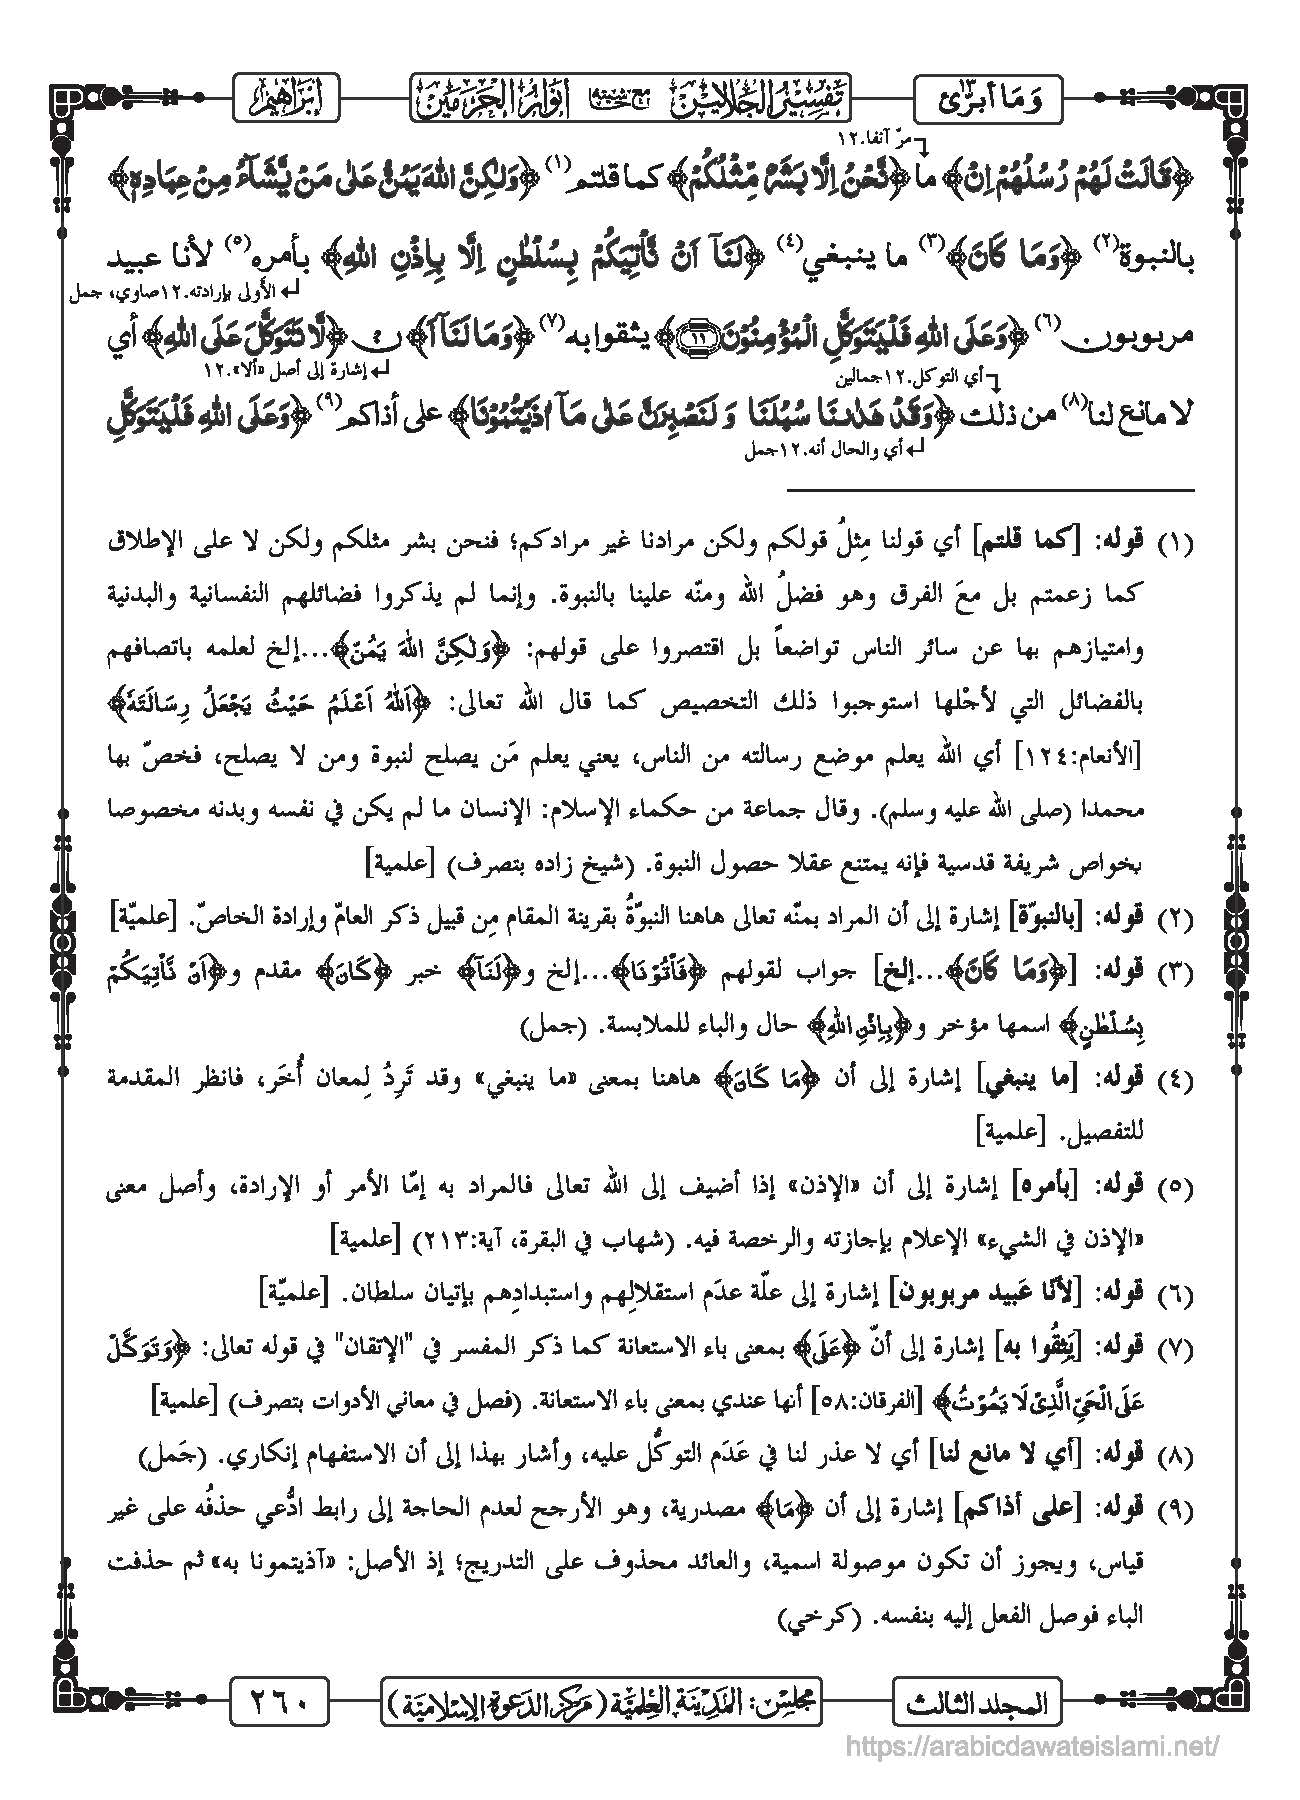 وَمَا أبرّئ ١٣
تفسير الجلالين مع حاشيته أنوار الحرمين
إبراهيم
مرّ آنفا.١٢
﴿قَالَتْ لَهُمْ رُسُلُهُمْ اِنْ﴾ ما ﴿نَّحْنُ اِلَّا بَشَرٌ مِّثْلُكُمْ﴾ كما قلتم(١) ﴿وَلٰكِنَّ اللهَ يَمُنُّ عَلٰى مَنْ يَّشَآءُ مِنْ عِبَادِهٖ﴾
بالنبوة(٢) ﴿وَمَا كَانَ﴾(٣) ما ينبغي(٤) ﴿لَنَآ اَنْ نَّاْتِيَكُمْ بِسُلْطٰنٍ اِلَّا بِاِذْنِ اللهِ﴾ بأمره(٥) لأنا عبيد
الأَولى بإرادته.١٢صاوي، جمل
مربوبون(٦) ﴿وَعَلَى اللهِ فَلْيَتَوَكَّلِ الْمُؤْمِنُوْنَ ١١﴾ يثقوا به(٧) ﴿وَمَا لَنَآ اَ﴾ن ﴿لَّا نَتَوَكَّلَ عَلَى اللهِ﴾ أي
إشارة إلى أصل «ألا».١٢
أي التوكل.١٢جمالين
لا مانع لنا(٨) من ذلك ﴿وَقَدْ هَدٰىنَا سُبُلَنَا وَلَنَصْبِرَنَّ عَلٰى مَآ اٰذَيْتُمُوْنَا﴾ على أذاكم(٩) ﴿وَعَلَى اللهِ فَلْيَتَوَكَّلِ
أي والحال أنه.١٢جمل
(١) قوله: [كما قلتم] أي قولنا مِثلُ قولكم ولكن مرادنا غير مرادكم؛ فنحن بشر مثلكم ولكن لا على الإطلاق
كما زعمتم بل معَ الفرق وهو فضلُ الله ومنّه علينا بالنبوة. وإنما لم يذكروا فضائلهم النفسانية والبدنية
وامتيازهم بها عن سائر الناس تواضعاً بل اقتصروا على قولهم: ﴿وَلٰكِنَّ اللهَ يَمُنّ﴾...إلخ لعلمه باتصافهم
بالفضائل التي لأجْلها استوجبوا ذلك التخصيص كما قال الله تعالى: ﴿اَللهُ اَعْلَمُ حَيْثُ يَجْعَلُ رِسَالَتَهٗ﴾
[الأنعام:١٢٤] أي الله يعلم موضع رسالته من الناس، يعني يعلم مَن يصلح لنبوة ومن لا يصلح، فخصّ بها
محمدا (صلى الله عليه وسلم). وقال جماعة من حكماء الإسلام: الإنسان ما لم يكن في نفسه وبدنه مخصوصا
بخواص شريفة قدسية فإنه يمتنع عقلا حصول النبوة. (شيخ زاده بتصرف) [علمية]
(٢) قوله: [بالنبوّة] إشارة إلى أن المراد بمنّه تعالى هاهنا النبوّةُ بقرينة المقام مِن قبيل ذكر العامّ وإرادة الخاصّ. [علميّة]
(٣) قوله: [﴿وَمَا كَانَ﴾...إلخ] جواب لقولهم ﴿فَاْتُوْنَا﴾...إلخ و﴿لَنَآ﴾ خبر ﴿كَانَ﴾ مقدم و﴿اَنْ نَّاْتِيَكُمْ
بِسُلْطٰنٍ﴾ اسمها مؤخر و﴿بِاِذْنِ اللهِ﴾ حال والباء للملابسة. (جمل)
(٤) قوله: [ما ينبغي] إشارة إلى أن ﴿مَا كَانَ﴾ هاهنا بمعنى «ما ينبغي» وقد تَرِدُ لِمعان أُخَر، فانظر المقدمة
للتفصيل. [علمية]
(٥) قوله: [بأمره] إشارة إلى أن «الإذن» إذا أضيف إلى الله تعالى فالمراد به إمّا الأمر أو الإرادة، وأصل معنى
«الإذن في الشيء» الإعلام بإجازته والرخصة فيه. (شهاب في البقرة، آية:٢١٣) [علمية]
(٦) قوله: [لأنّا عَبيد مربوبون] إشارة إلى علّة عدَم استقلالِهم واستبدادِهم بإتيان سلطان. [علميّة]
(٧) قوله: [يَثِقُوا به] إشارة إلى أنّ ﴿عَلَى﴾ بمعنى باء الاستعانة كما ذكر المفسر في "الإتقان" في قوله تعالى: ﴿وَتَوَكَّلْ
عَلَى الْحَيِّ الَّذِىْ لَا يَمُوْتُ﴾ [الفرقان:٥٨] أنها عندي بمعنى باء الاستعانة. (فصل في معاني الأدوات بتصرف) [علمية]
(٨) قوله: [أي لا مانع لنا] أي لا عذر لنا في عَدَم التوكُّل عليه، وأشار بهذا إلى أن الاستفهام إنكاري. (جَمل)
(٩) قوله: [على أذاكم] إشارة إلى أن ﴿مَا﴾ مصدرية، وهو الأرجح لعدم الحاجة إلى رابط ادُّعي حذفُه على غير
قياس، ويجوز أن تكون موصولة اسمية، والعائد محذوف على التدريج؛ إذ الأصل: «آذيتمونا به» ثم حذفت
الباء فوصل الفعل إليه بنفسه. (كرخي)
المجلد الثالث
مجلس: المَدينة العِلميّة (مركز الدعوة الإسلاميّة)
٢٦٠
https://arabicdawateislami.net/